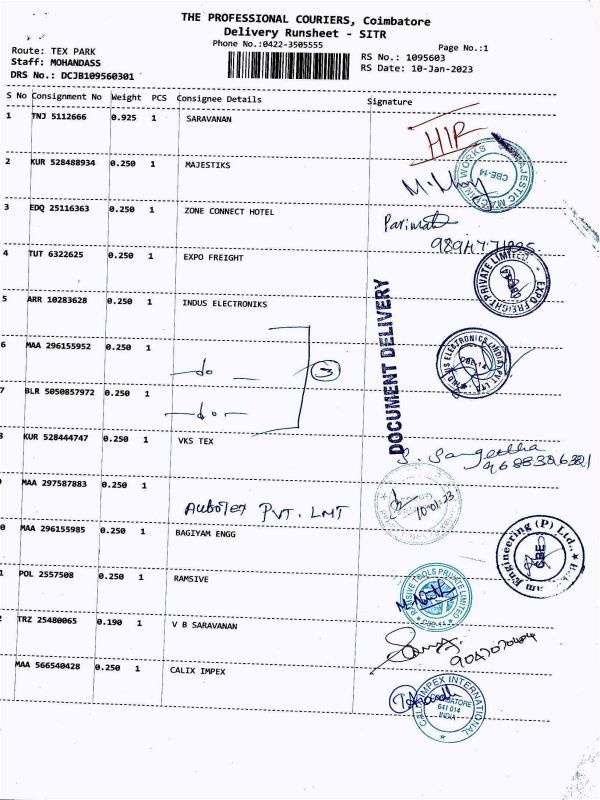 THE PROFESSIONAL COURIERS, Coimbatore
Delivery Runsheet - SITR
Phone No.:0422-3505555
Page No.:1
Route: TEX PARK
RS No.: 1095603
Staff: MOHANDASS
RS Date: 10-Jan-2023
DRS No.: DCJB109560301
S No Consignment No Weight PCS Consignee Details Signature
1 TNJ 5112666 0.925 1 SARAVANAN
HIR
2 KUR 528488934 0.250 1 MAJESTIKS
MAJESTIC MACH WORKS
CBE-14
3 EDQ 25116363 0.250 1 ZONE CONNECT HOTEL
4 TUT 6322625 0.250 1 EXPO FREIGHT
EXPO FREIGHT PRIVATE LIMITED
5 ARR 10283628 0.250 1 INDUS ELECTRONIKS
DOCUMENT DELIVERY
INDUS ELECTRONICS (INDIA) PVT LTD
CBE-14
6 MAA 296155952 0.250 1
-do-
3
7 BLR 5050857972 0.250 1
-do-
KUR 528444747 0.250 1 VKS TEX
S. Sangeetha
9688326321
MAA 297587883 0.250 1
Autotex PVT. LMT
10-01-23
0 MAA 296155985 0.250 1 BAGIYAM ENGG
Engineering (P) Ltd.,
CBE
1 POL 2557508 0.250 1 RAMSIVE
RAMSIVE TOOLS PRIVATE LIMITED
CBE-14
2 TRZ 25480065 0.190 1 V B SARAVANAN
MAA 566540428 0.250 1 CALIX IMPEX
CALIX IMPEX INTERNATIONAL
COIMBATORE
641 014
INDIA